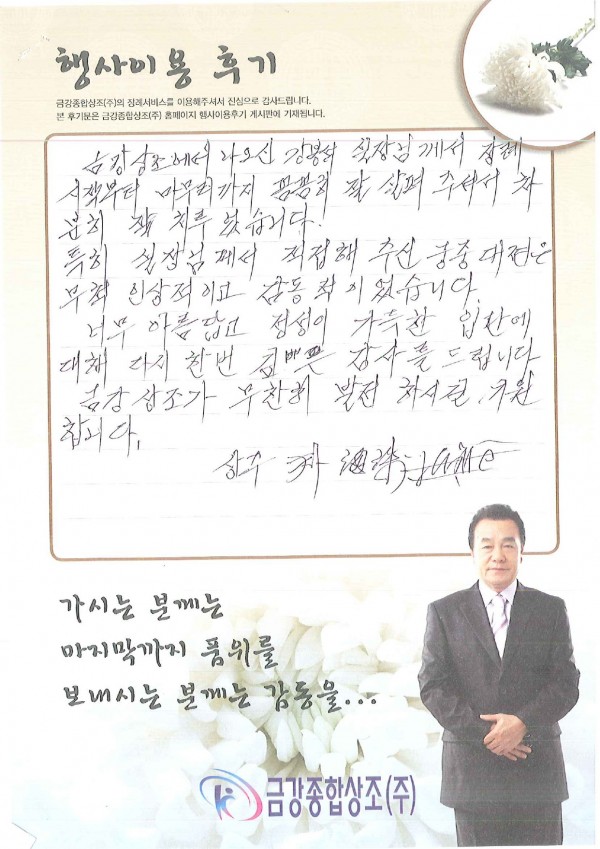 행사이용 후기
금강종합상조(주)의 장례서비스를 이용해주셔서 진심으로 감사드립니다.
본 후기문은 금강종합상조(주) 홈페이지 행사이용후기 게시판에 기재됩니다.
금강상조에서 나오신 실장님께서 장례
시작부터 마무리까지 꼼꼼히 잘 살펴 주셔서 차
분히 잘 치루었습니다.
특히 실장님께서 직접해 주신 대전은
무척 인상적이고 감동적이었습니다.
너무 아름답고 정성이 가득한 입관에
대해 다시 한번 감사를 드립니다
금강상조가 무한히 발전 하시길 기원
합니다.
상주
가시는 분께는
마지막까지 품위를
보내시는 분께는 감동을...
금강종합상조(주)